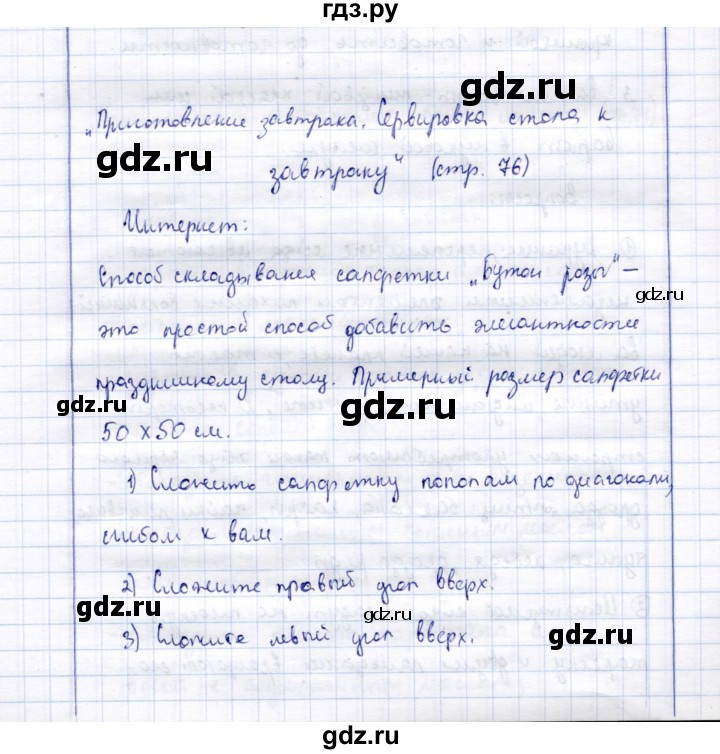 гдз.ру
„Приготовление завтрака. Сервировка стола к
завтраку“ (стр. 76)
Интернет:
Способ складывания салфетки „Бутон розы“ –
это простой способ добавить элегантности
праздничному столу. Примерный размер салфетки
50 х 50 см.
1) Сложить салфетку пополам по диагонали,
сгибом к вам.
2) Сложите правый угол вверх.
3) Сложите левый угол вверх.
gdz.ru
gdz.ru
gdz.ru
gdz.ru
gdz.ru
gdz.ru
gdz.ru
gdz.ru
gdz.ru
gdz.ru
gdz.ru
gdz.ru
gdz.ru